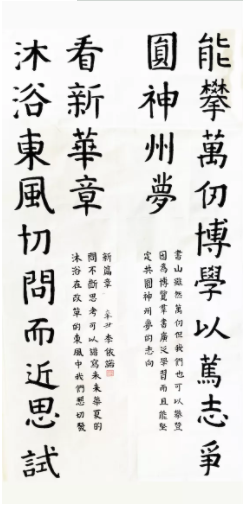 能攀萬仞博學以篤志爭
圓神州夢
書山雖然萬仞但我們也可以攀登
因為博覽羣書廣泛學習而且能堅
定共圓神州夢的志向
沐浴東風切問而近思試
看新華章
沐浴在改革的東風中我們懇切發
問不斷思考可以譜寫未來華夏的
新篇章 李依